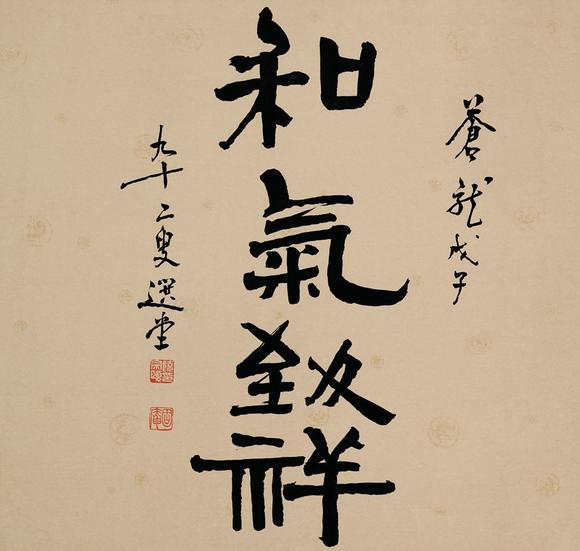 蒼龍戊子
和氣致祥
九十二叟選堂